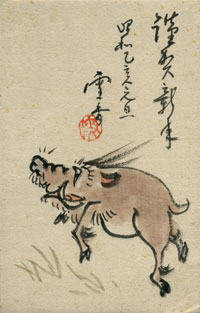 謹賀新年
昭和乙亥元旦
雪香